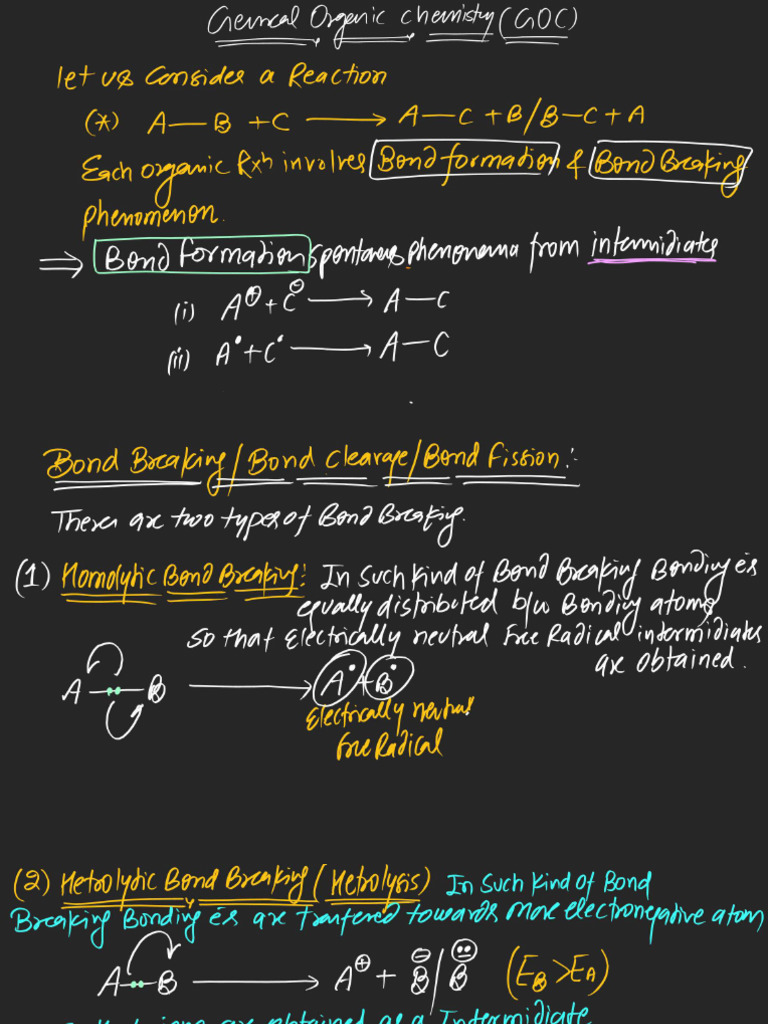 General Organic Chemistry (GOC)
let us Consider a Reaction
(*) A—B + C ⟶ A—C + B/B—C + A
Each organic Rxn involves Bond formation & Bond Breaking
phenomenon.
⇒ Bond formation phenomena from intermidiates
(i) A⊕ + C⊖ ⟶ A—C
(ii) A• + C• ⟶ A—C
Bond Breaking/Bond Clearage/Bond fission:-
There are two types of Bond Breaking.
(1) Homolytic Bond Breaking: In Such Kind of Bond Breaking Bonding es
equally distributed b/w Bonding atoms
so that Electrically neutral Free Radical intermidiates
are obtained.
A—B ⟶ A• + B•
Electrically neutral
Free Radical
(2) Hetrolytic Bond Breaking (Hetrolysis) In Such Kind of Bond
Breaking Bonding es are towards More electronegative atom
A—B ⟶ A⊕ + B⊖/B (EB > EA)
ions are obtained as a Intermidiate